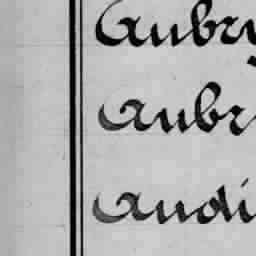 Aubry
Aubr
Audi